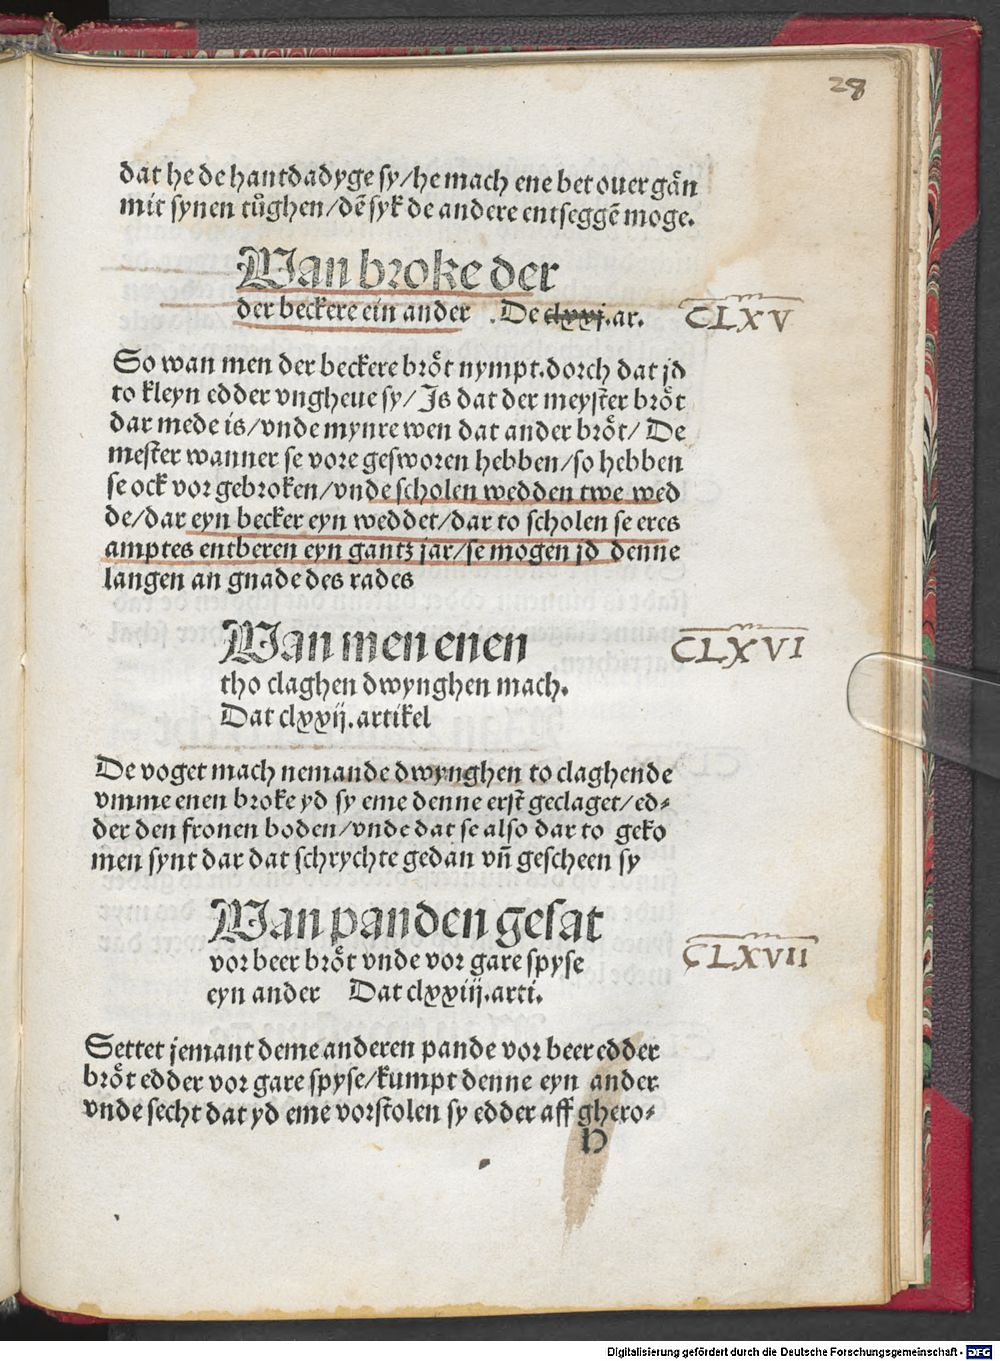 28
dat he de hantdadyge sy/he mach ene bet ouer gån
mit synen tůghen/dē syk de andere entseggē moge.
Wan broke der
der beckere ein ander . De clxxj.ar.
CLXV
So wan men der beckere brőt nympt.dorch dat jd
to kleyn edder vngheue sy/Is dat der meyster brőt
dar mede is/vnde mynre wen dat ander brőt/ De
mester wanner se vore gesworen hebben/so hebben
se ock vor gebroken/vnde scholen wedden twe wed
de/dar eyn becker eyn weddet/dar to scholen se eres
amptes entberen eyn gantz jar/se mogen jd denne
langen an gnade des rades
Wan men enen
CLXVI
tho claghen dwynghen mach.
Dat clxxij.artikel
De voget mach nemande dwynghen to claghende
vmme enen broke yd sy eme denne erst geclaget/ed⸗
der den fronen boden/vnde dat se also dar to geko
men synt dar dat schrychte gedan vn̄ gescheen sy
Wan panden gesat
vor beer brőt vnde vor gare spyse
CLXVII
eyn ander Dat clxxiij.arti.
Settet jemant deme anderen pande vor beer edder
brőt edder vor gare spyse/kumpt denne eyn ander
vnde secht dat yd eme vorstolen sy edder aff ghero⸗
H
Digitalisierung gefördert durch die Deutsche Forschungsgemeinschaft - DFG